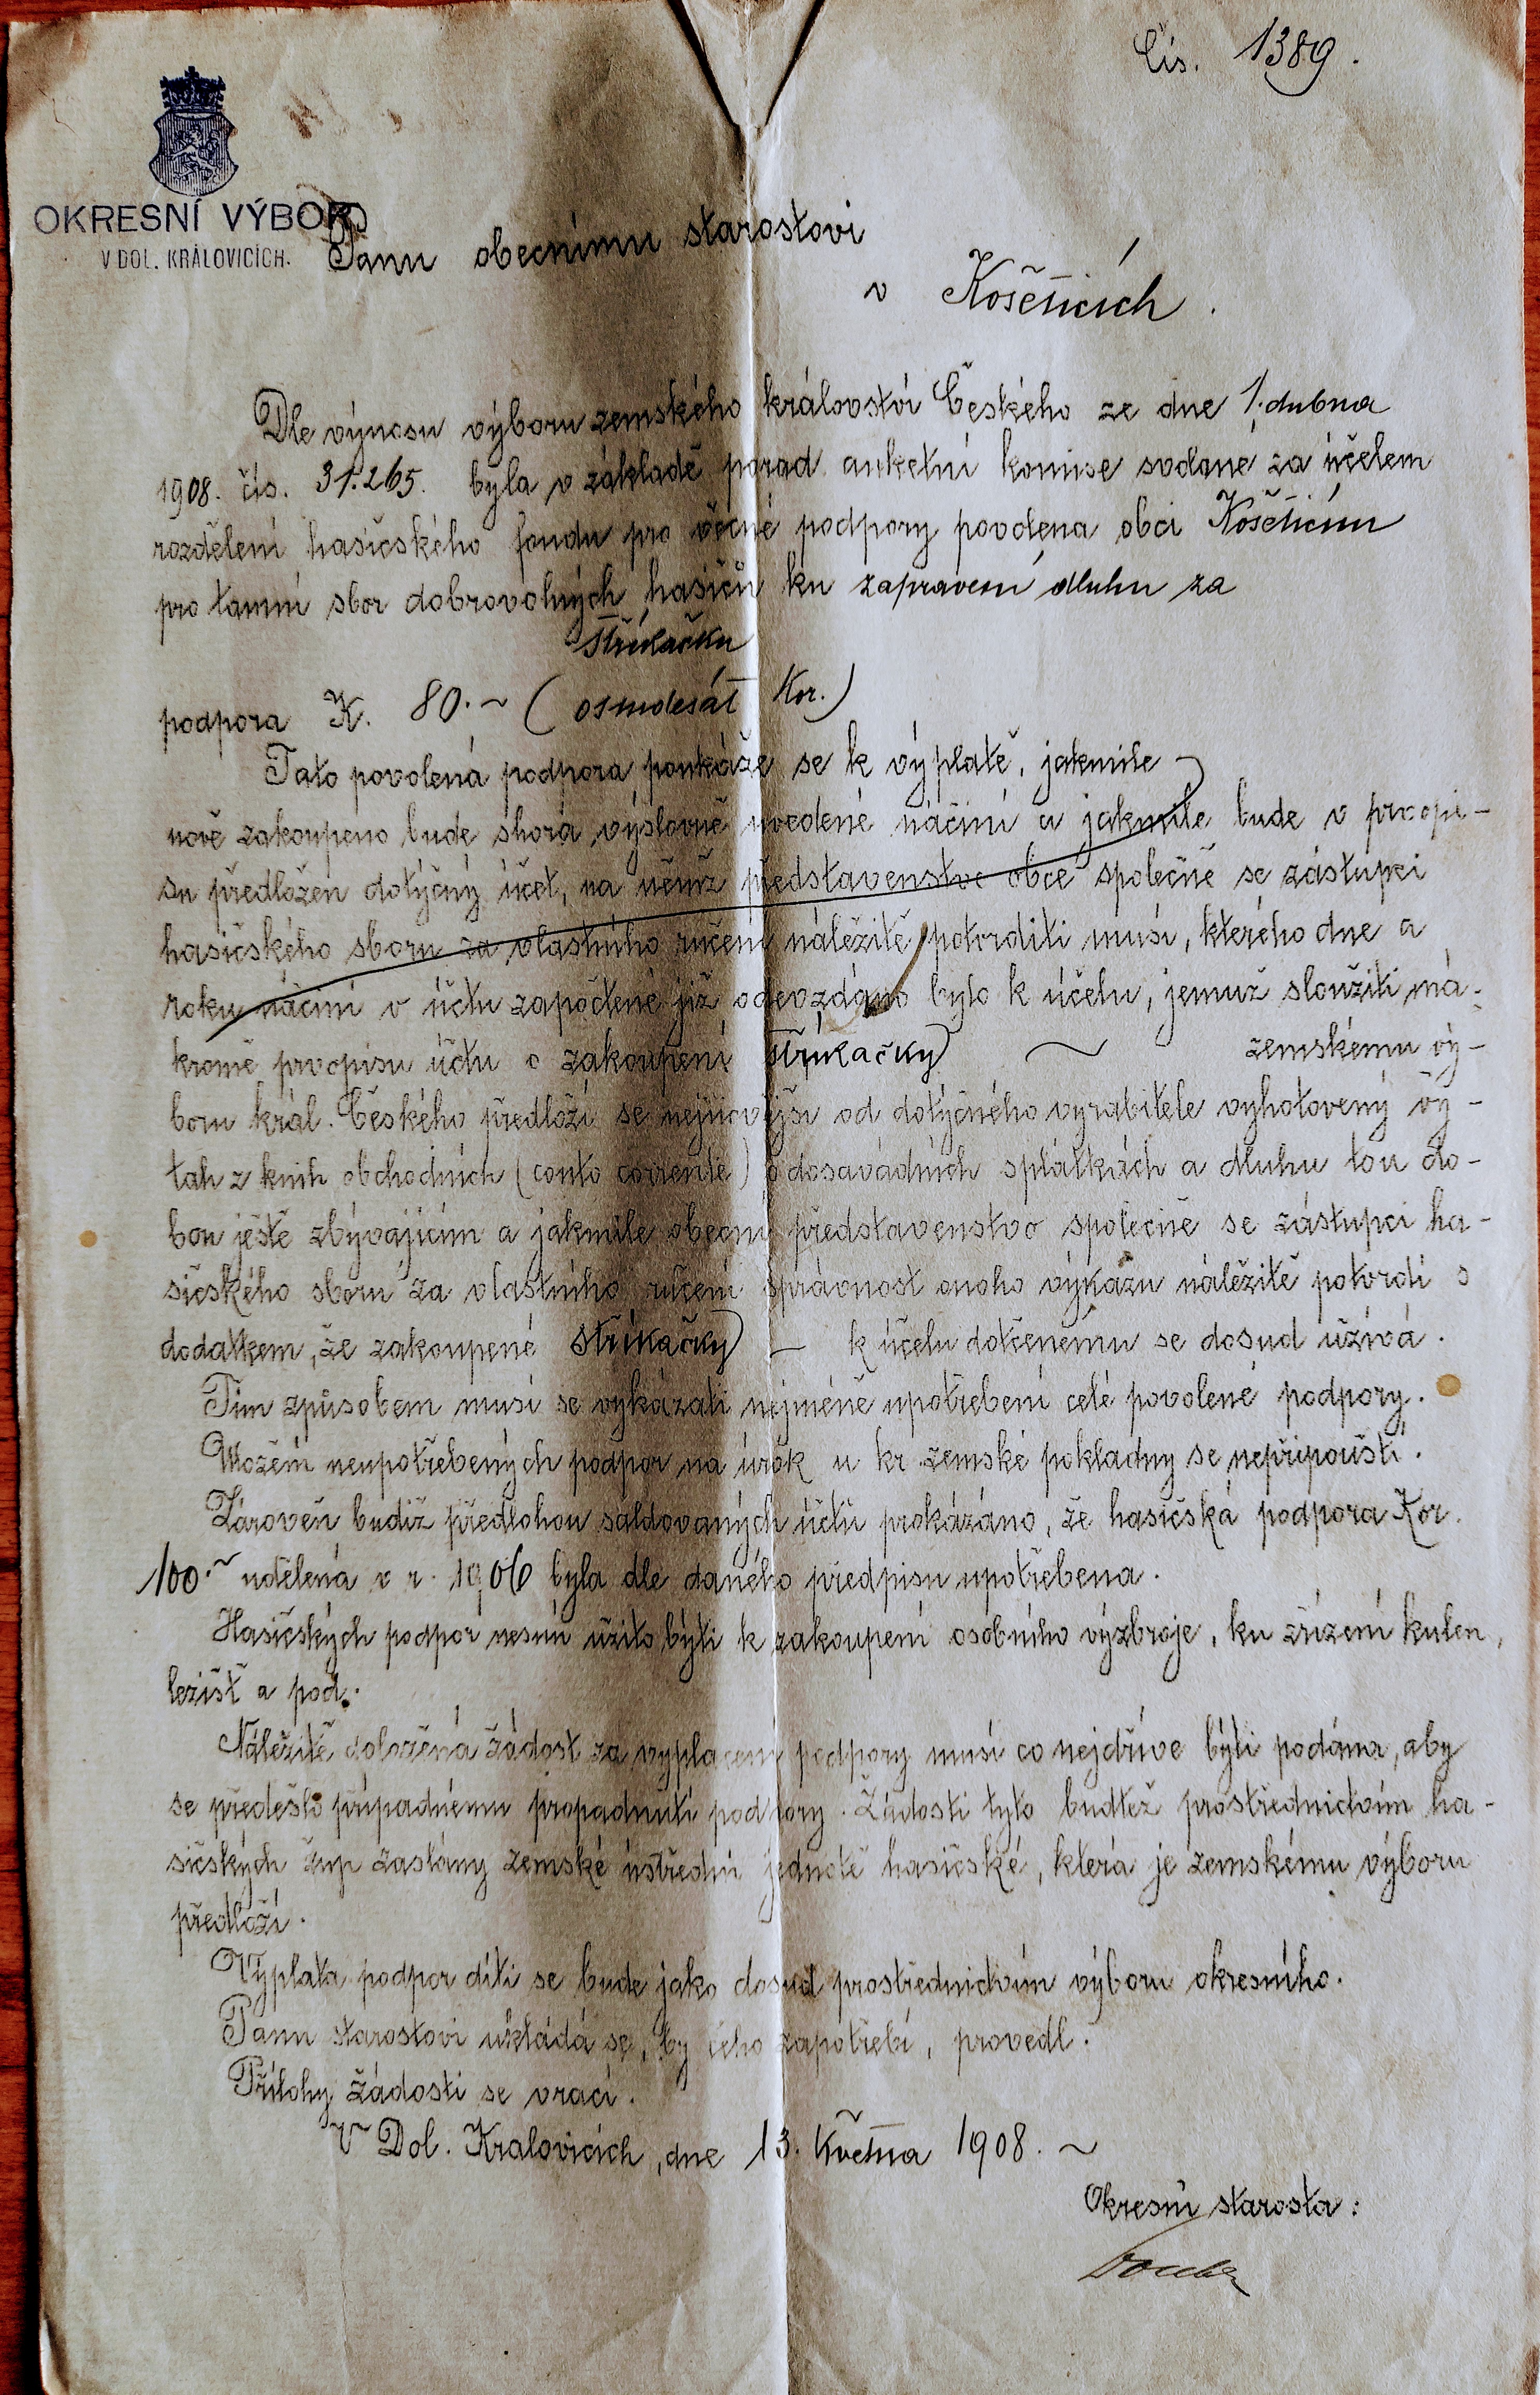 Čís. 1389.
OKRESNÍ VÝBOR
V DOL. KRÁLOVICÍCH.
Panu obecnímu starostovi
v Košeticích.
Dle výnosu výboru zemského království Českého ze dne 1. dubna
1908. čís. 31.265. byla v základě porad anketní komise svolané za účelem
rozdělení hasičského fondu pro věcné podpory povolena obci Košeticům
pro tamní sbor dobrovolných hasičů ku zapravení dluhu za
stříkačku
podpora K. 80.~ (osmdesát Kor.)
Tato povolená podpora poukáže se k výplatě, jakmile
nově zakoupeno bude shora výslovně uvedené náčiní a jakmile bude v prvopi-
su předložen dotyčný účet, na němž představenstvo obce společně se zástupci
hasičského sboru za vlastního ručení náležitě potvrditi musí, kterého dne a
roku náčiní v účtu započtené již odevzdáno bylo k účelu, jemuž sloužiti má.
kromě prvopisu účtu o zakoupení stříkačky ~ zemskému vý-
boru král. Českého předloží se nejnovější od dotyčného vyrabitele vyhotovený vý-
tah z knih obchodních (conto corrente) o dosavádních splátkách a dluhu tou do-
bou ješte zbývajícím a jakmile obecní představenstvo společně se zástupci ha-
sičského sboru za vlastního ručení správnost onoho výkazu náležitě potvrdí s
dodatkem, že zakoupené stříkačky – k účelu dotčenému se dosud užívá.
Tím způsobem musí se vykázati nejméně upotřebení celé povolené podpory.
Uložení neupotřebených podpor na úrok u kr. zemské pokladny se nepřipouští.
Zároveň budiž předlohou saldovaných účtů prokázáno, že hasičská podpora Kor.
100.~ udělená v r. 1906 byla dle daného předpisu upotřebena.
Hasičských podpor nesmí užito býti k zakoupení osobního výzbroje, ku zřízení kůlen,
ležišť a pod.
Náležitě doložená žádost za vyplacení podpory musí co nejdříve býti podána, aby
se předešlo případnému propadnutí podpory. Žádosti tyto buďtež prostřednictvím ha-
sičských žup zaslány zemské ústřední jednotě hasičské, která je zemskému výboru
předloží.
Výplata podpor díti se bude jako dosud prostřednictvím výboru okresního.
Panu starostovi ukládá se, by čeho zapotřebí, provedl.
Přílohy žádosti se vrací.
V Dol. Kralovicích, dne 13. května 1908. ~
Okresní starosta: